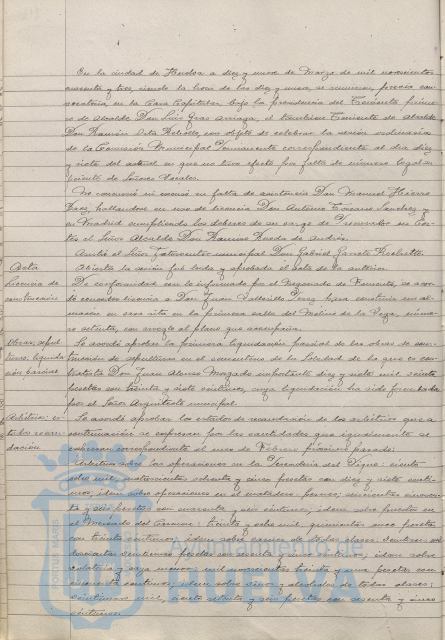 En la ciudad de Huelva a diez y nueve de Marzo de mil novecientos
cuarenta y tres, siendo la hora de las diez y nueve, se reunieron, previa con-
vocatoria, en la Casa Capitular, bajo la presidencia del Teniente prime-
ro de Alcalde Don Luis Gras Arriaga, el Teniente de Alcalde
Don Ramón con objeto de celebrar la sesión ordinaria
de la Comisión Municipal Permanente correspondiente al día diez
y siete del actual en que no tuvo efecto por falta de número legal su-
ficiente de Señores Vocales.
No concurrió ni excusó su falta de asistencia Don Manuel Hierro
Pérez, hallándose en uso de licencia Don Antonio Toscano Sánchez y
en Madrid cumpliendo los deberes de su cargo de Procurador en Cor-
tes el Señor Alcalde Don Ramiro
Asistió el Señor Interventor municipal Don Gabriel
Acta
Abierta la sesión fué leída y aprobada el acta de la anterior.
Licencia de
construcción
De conformidad con lo informado por el Negociado de Fomento, se acor-
dó conceder licencia a Don Juan Vallecillo Pérez para construir un al-
macén en casa sita en la primera calle del Molino de la Vega, núme-
ro setenta, con arreglo al plano que acompaña.
Obras, sepul-
turas, liquida-
ción parcial
Se acordó aprobar la primera liquidación parcial de las obras de cons-
trucción de sepulturas en el cementerio de la Soledad de la que es con-
tratista Don Juan Alonso Morgado importante diez y siete mil siete
pesetas con treinta y siete céntimos, cuya liquidación ha sido formulada
por el Señor Arquitecto municipal.
Arbitrios: es-
tados recau-
dación
Se acordó aprobar los estados de recaudación de los arbitrios que a
continuación se expresan por las cantidades que igualmente se
expresan correspondientes al mes de Febrero próximo pasado:
Arbitrios sobre las operaciones en la Pescadería del Dique: ciento
ocho mil cuatrocientas ochenta y cinco pesetas con diez y siete cénti-
mos; idem sobre operaciones en el matadero:
y seis pesetas con cuarenta y seis céntimos; idem sobre puestos en
el Mercado del Carmen: treinta y ocho mil quinientas once pesetas
con treinta céntimos; idem sobre carnes de todas clases:
doscientas pesetas con céntimos; idem sobre
volatería y caza menor: mil novecientas treinta y una pesetas con
cincuenta céntimos; idem sobre vinos y alcoholes de todas clases:
mil, ciento setenta y seis pesetas con sesenta y cinco
céntimos
Ayuntamiento de
PORTUS MARIS